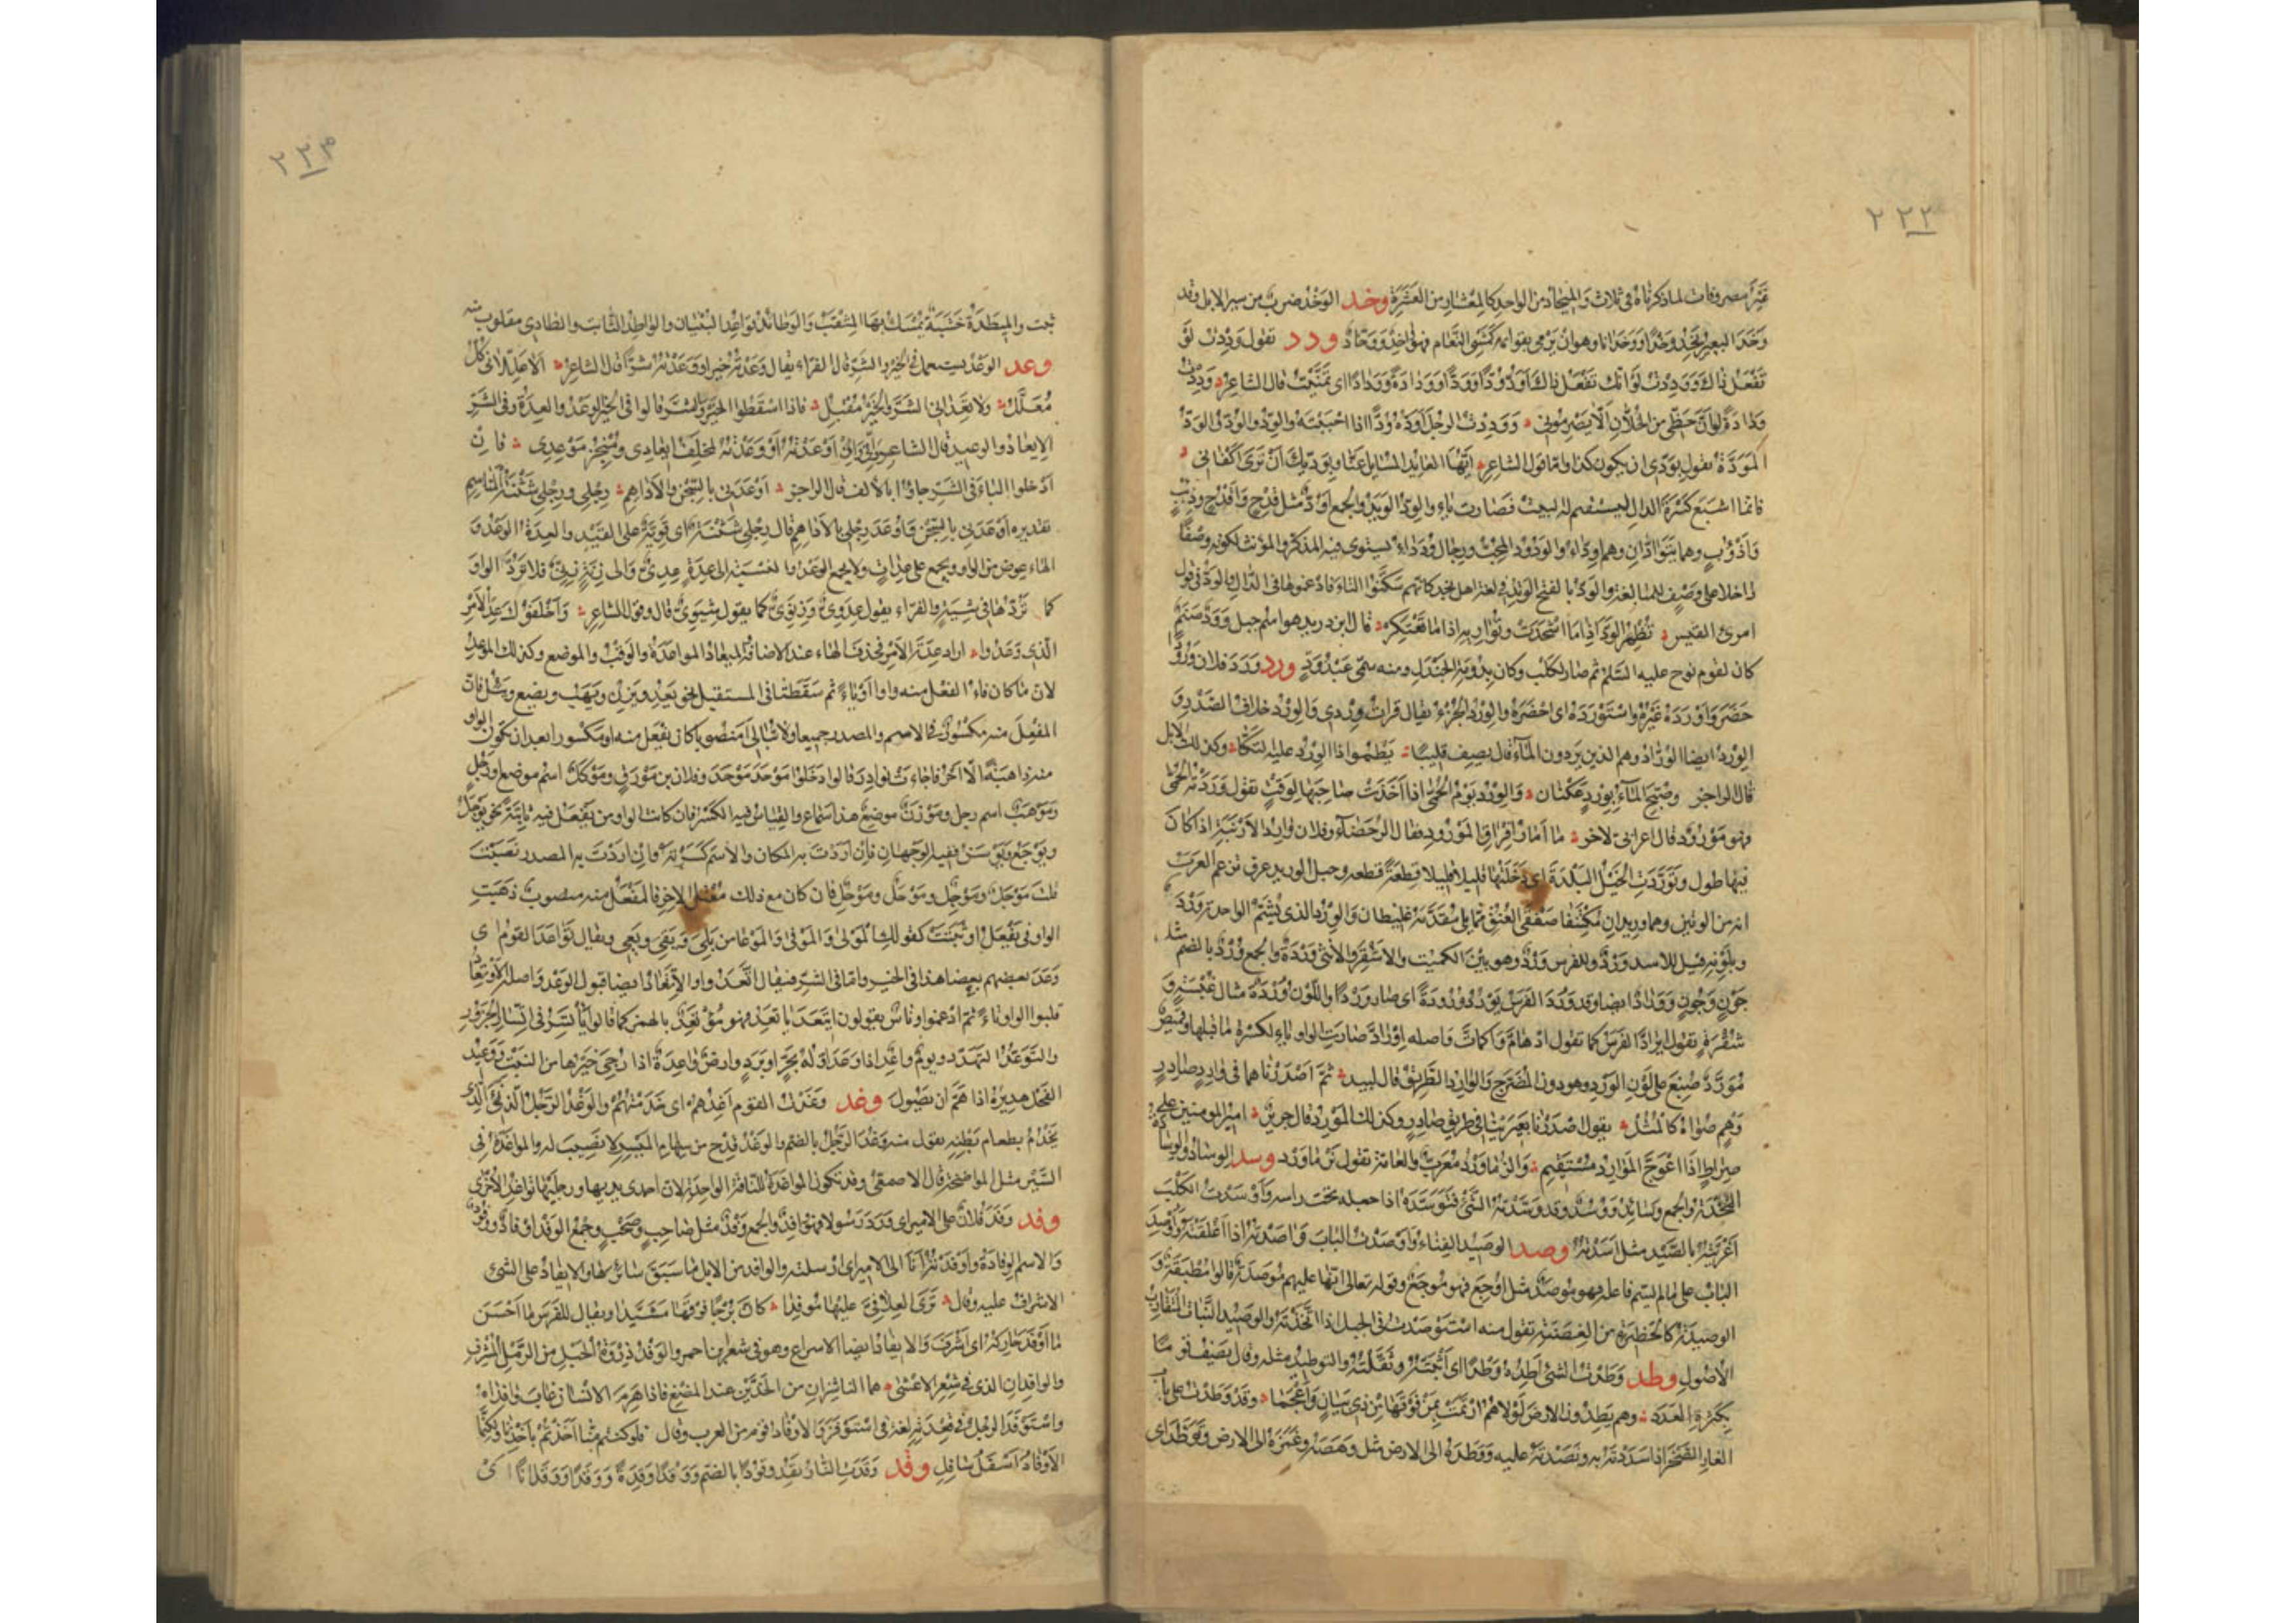 ٢٢٢
غير مصروفات لما ذكرناه فى ثلاث والميحاد من الواحد كالمعشار من العشرة وخد الوخد ضرب من سير الابل وقد
وخد البعير يخد وخدا ووخدانا وهو ان يرمى بقوائمه كمشى النعام فهو واخد ووخاد ودد تقول وددت لو
تفعل ذاك ووددت لو انك تفعل ذاك اود ودا وودا وودادة وودادا اى تمنيت قال الشاعر وددت
ودادة لو ان حظى من الخلان الا يصرمونى ووددت الرجل اوده ودا اذا احببته والود والود والود
المودة تقول بودى ان يكون كذا واما قول الشاعر ايها العائد المسايل عنا وبوديك ان ترى اكفانى
فانما اشبع كسرة الدال ليستقيم له البيت فصارت ياء والود الوديد والجمع اود مثل قدح واقدح وذئب
واذؤب وهما يتوادان وهم اوداء والودود المحب ورجال ودداء يستوى فيه المذكر والمؤنث لكونه وصفا
داخلا على وصف للمبالغة والود بالفتح الوتد فى لغة اهل نجد كانهم سكنوا التاء فادغموها فى الدال والود فى قول
امرئ القيس تظهر الود اذا ما اشجذت وتواريه اذا ما تعتكر قال ابن دريد هو اسم جبل وود صنم
كان لقوم نوح عليه السلم ثم صار لكلب وكان بدومة الجندل ومنه سمى عبد ود ورد ورد فلان ورودا
حضر واورده غيره واستورده اى احضره والورد الجزء يقال قرات وردى والورد خلاف الصدر و
الورد ايضا الوراد وهم الذين يردون الماء قال يصف قليبا يطمو اذا الورد عليه التكا وكذلك الابل
قال الراجز وصبح الماء بورد عكنان والورد يوم الحمى اذا اخذت صاحبها لوقت تقول وردته الحمى
فهو مورود قال اعرابى لاخر ما امار افراق المورود فقال الرحضاء وفلان وارد الارنبة اذا كان
فيها طول وتوردت الخيل البلدة اى دخلتها قليلا قليلا قطعة قطعة وحبل الوريد عرق تزعم العرب
انه من الوتين وهما وريدان مكتنفا صفقى العنق مما يلى مقدمه غليظان والورد الذى يشم الواحدة وردة
وبلونه قيل للاسد ورد وللفرس ورد وهو بين الكميت والاشقر والانثى وردة والجمع ورد بالضم مثل
جون وجون ووراد ايضا وقد ورد الفرس يورد ورودة اى صار وردا واللون وردة مثال غبسة و
شقرة تقول ايراد الفرس كما تقول ادهام واكمات واصله اوراد صارت الواو ياء لكسرة ما قبلها وقميص
مورد صبغ على لون الورد وهو دون المضرج والوارد الطريق قال لبيد ثم اصدرناهما فى وارد صادر
وهم صواه كالمثل يقول اصدرنا بعيرينا فى طريق صادر وكذلك المورد قال جرير امير المومنين على
صراط اذا اعوج الموارد مستقيم والزماورد معرب والعامة تقول بزماورد وسد الوساد والوسادة
المخدة والجمع وسائد ووسد وقد وسدته الشئ فتوسده اذا جعله تحت راسه واوسدت الكلب
اغريته بالصيد مثل اسدته وصد الوصيد الفناء واوصدت الباب واصدته اذا اغلقته واوصد
الباب على ما لم يسم فاعله فهو موصد مثل اوجع فهو موجع وقوله تعالى انها عليهم موصدة قالوا مطبقة و
الوصيدة كالحظيرة من الغصنة تقول منه استوصدت فى الجبل اذا اتخذته والوصيد النبات المتقارب
الاصول وطد وطدت الشئ اطده وطدا اى اثبته وثقلته والتوطيد مثله وقال يصف قوما
بكثرة العدد وهم يطدون الارض لولاهم ارتمت بمن فوقها من ذى بيان واعجما وقد وطدت على باب
الغار الصخر اذا سددته به ونضدته عليه ووطده الى الارض مثل وهصه وغمزه الى الارض وتوطد اى
٢٢٣
ثبت والميطدة خشبة يمسك بها المثقب والوطائد قواعد البنيان والواطد الثابت والطادى مقلوب منه
وعد الوعد يستعمل فى الخير والشر قال الفراء يقال وعدته خيرا ووعدته شرا قال الشاعر الا عللانى كل
معلل ولا تعدانى الشر والخير مقبل فاذا اسقطوا الخير والشر قالوا فى الخير الوعد والعدة وفى الشر
الايعاد والوعيد قال الشاعر وانى وان اوعدته او وعدته لمخلف ايعادى ومنجز موعدى فان
ادخلوا الباء فى الشر جاؤا بالالف قال الراجز اوعدنى بالسجن والاداهم رجلى ورجلى شثنة المناسم
تقديره اوعدنى بالسجن واوعد رجلى بالاداهم ثم قال رجلى شثنة اى قوية على القيد والعدة الوعد و
الهاء عوض من الواو ويجمع على عدات ولا يجمع الوعد والنسبة الى عدة عدى والى زنة زنى فلا ترد الواو
كما تردها فى شية والفراء يقول عدوى وزنوى كما يقول شيوى قال وقول الشاعر واخلفوك عد الامر
الذى وعدوا اراد عدة الامر فحذف الهاء عند الاضافة والميعاد المواعدة والوقت والموضع وكذلك الموعد
لان ما كان فاء الفعل منه واوا او ياء ثم سقطتا فى المستقبل نحو يعد ويزن ويهب ويضع ويثل فان
المفعل منه مكسور فى الاسم والمصدر جميعا ولا تبالى امنصوبا كان يفعل منه او مكسورا بعد ان تكون الواو
منه ذاهبة الا احرفا جاءت نوادر قالوا دخلوا موحد موحد وفلان بن مورق وموكل اسم موضع او رجل
وموهب اسم رجل وموزن موضع هذا سماع والقياس فيه الكسر فان كانت الواو من يفعل فيه ثابتة نحو يوجل
ويوجع ويوسن ففيه الوجهان فان اردت به المكان والاسم كسرته وان اردت به المصدر نصبت
قلت موجل وموجل وموحل وموحل فان كان مع ذلك معتل الاخر فالمفعل منه منصوب ذهبت
الواو فى يفعل او ثبتت كقولك المولى والموفى والموعا من يلى ويفى ويعى ويقال تواعد القوم اى
وعد بعضهم بعضا هذا فى الخير واما فى الشر فيقال اتعدوا والاتعاد ايضا قبول الوعد واصله الاوتعاد
قلبوا الواو تاء ثم ادغموا وناس يقولون ايتعد ياتعد فهو مؤتعد بالهمز كما قالوا ياتسر فى ايتسار الجزور
والتوعد التهدد ويوم واعد اذا وعد اوله بحر او برد وارض واعدة اذا رجى خيرها من النبت ووعيد
الفحل هديره اذا هم ان يصول وغد وغدت القوم اغدهم اى خدمتهم والوغد الرجل الدنى الذى
يخدم بطعام بطنه تقول منه وغد الرجل بالضم والوغد قدح من سهام الميسر لا نصيب له والمواغدة فى
السير مثل المواضخة قال الاصمعى وقد تكون المواغدة للناقة الواحدة لان احدى يديها ورجليها تواغد الاخرى
وفد وفد فلان على الامير اى ورد رسولا فهو وافد والجمع وفد مثل صاحب وصحب وجمع الوفد اوفاد ووفود
والاسم الوفادة واوفدته انا الى الامير اى ارسلته والوافد من الابل ما سبق سائرها والايفاد على الشئ
الاشراف عليه وقال ترى العلافى عليها موفدا كان برجا فوقها مشيدا ويقال للفرس ما احسن
ما اوفد حاركه اى اشرف والايفاد ايضا الاسراع وهو فى شعر ابن احمر والوفد ذروة الحبل من الرمل المشرف
والوافدان الذى فى شعر الاعشى هما الناشزان من الخدين عند المضغ فاذا هرم الانسان غاب وافداه
واستوفد الرجل فى قعدته لغة فى استوفز والاوفاد قوم من العرب وقال فلو كنتم منا اخذتم باخذنا ولكنما
الاوفاد اسفل سافل وقد وقدت النار تقد وقودا بالضم ووقدا وقدة ووقدا ووقدانا اى